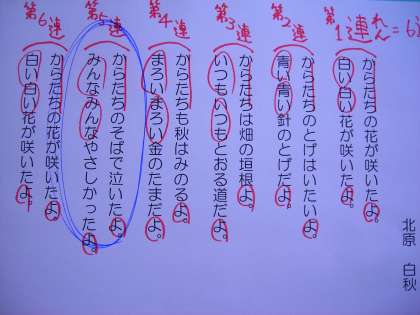 北原 白秋
第1連 れん=6
からたちの花が咲いたよ。
白い白い花が咲いたよ。
第2連
からたちのとげはいたいよ。
青い青い針のとげだよ。
第3連
からたちは畑の垣根よ。
いつもいつもとおる道だよ。
第4連
からたちも秋はみのるよ。
まろいまろい金のたまだよ。
第5連
からたちのそばで泣いたよ。
みんなみんなやさしかったよ。
第6連
からたちの花が咲いたよ。
白い白い花が咲いたよ。